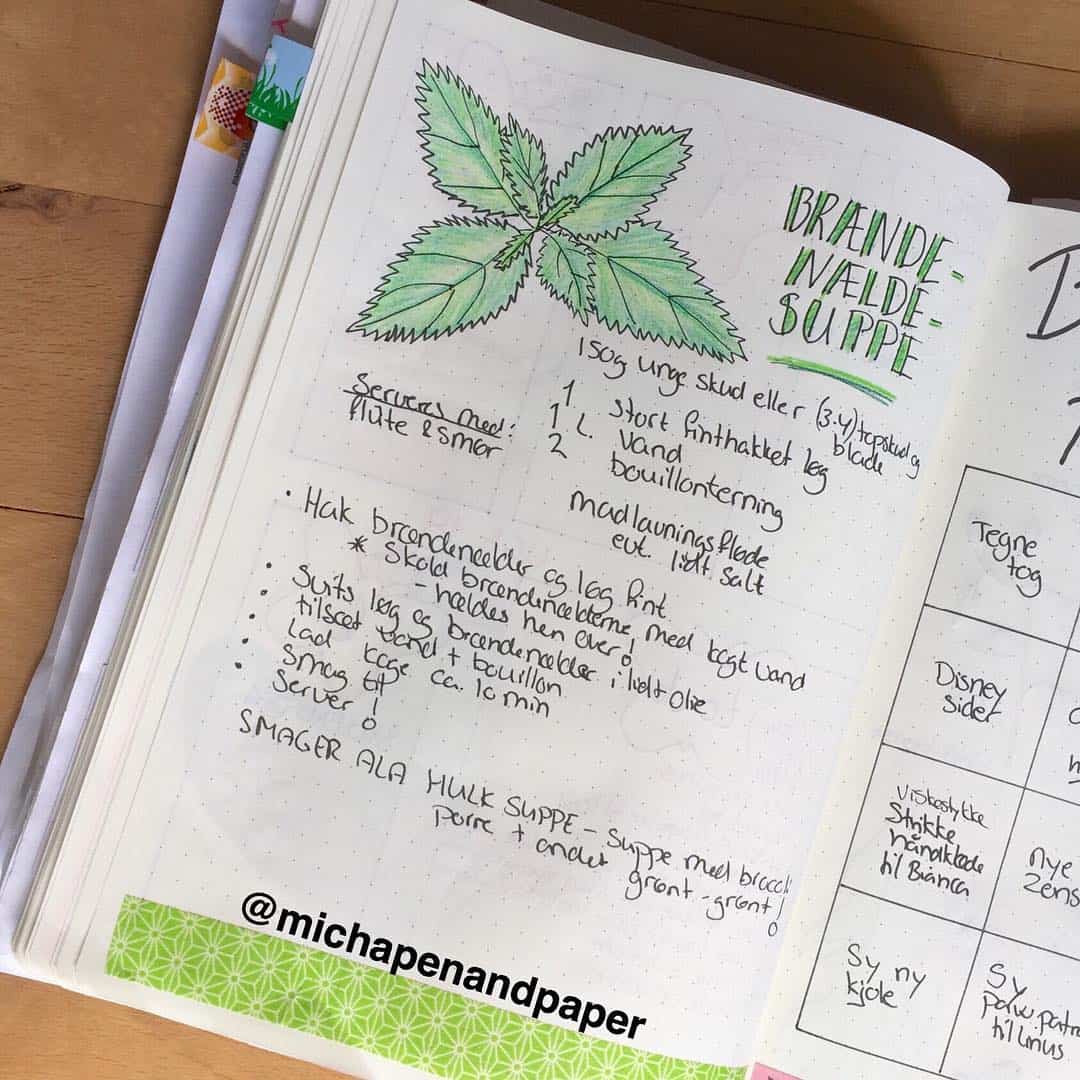 BRÆNDE-
NÆLDE-
SUPPE
150g unge skud eller (3-4) topskud og
blade
1 stort finthakket løg
1 L. vand
2 bouillonterning
madlavningsfløde
evt. lidt salt
Serveres med:
flûte & smør
• Hak brændenælder og løg fint
* Skold brændenælderne, med kogt vand
- hældes hen over!
• Svits løg og brændenælder i lidt olie
• tilsæt vand + bouillon
• Lad koge ca. 10 min
• Smag til
• Server!
SMAGER ALA HULK SUPPE - Suppe med broccoli
porre + andet
grønt - grønt!
@michapenandpaper
Tegne
tog
Disney
sider
Viskestykke
Strikke
håndklæde
til Bianca
nye
Zens
Sy ny
kjole
Sy
paw patr
til Linus